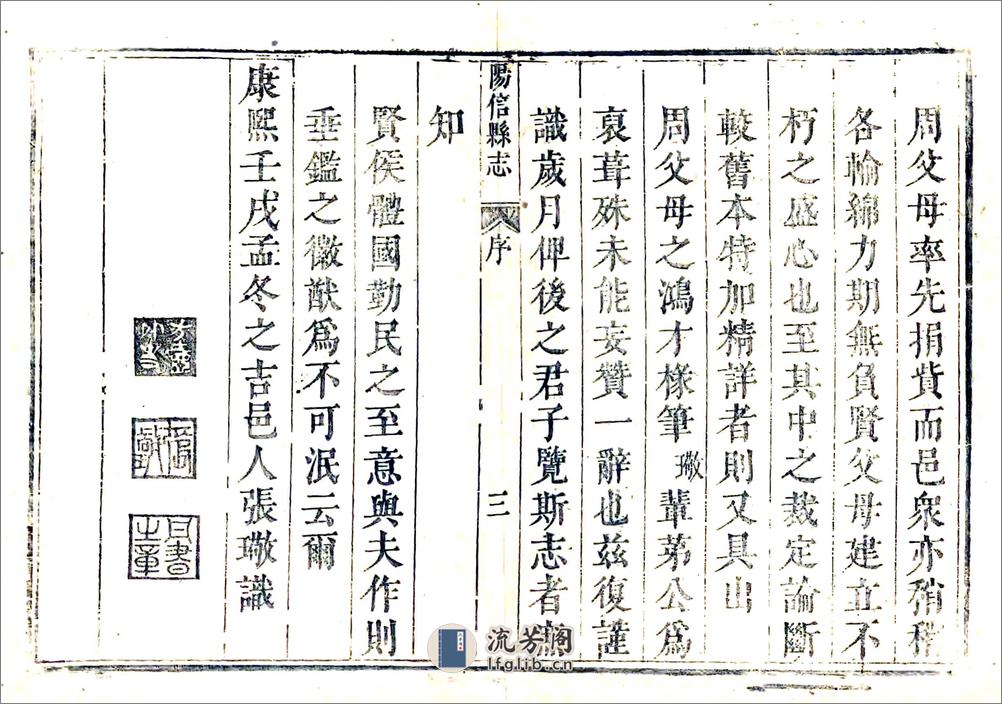 周父母率先捐貲而邑衆亦稍稍
各輸綿力期無負賢父母建立不
朽之盛心也至其中之裁定論斷
較舊本特加精詳者則又具出
周父母之鴻才椽筆璥輩苐公爲
裒葺殊未能妄贊一辭也茲復謹
識歲月俾後之君子覽斯志者庶
陽信縣志 序 三
知
賢侯體國勤民之至意與夫作則
垂鑑之徽猷爲不可泯云爾
康熙壬戌孟冬之吉邑人張璥識
流芳閣
lfglib.cn